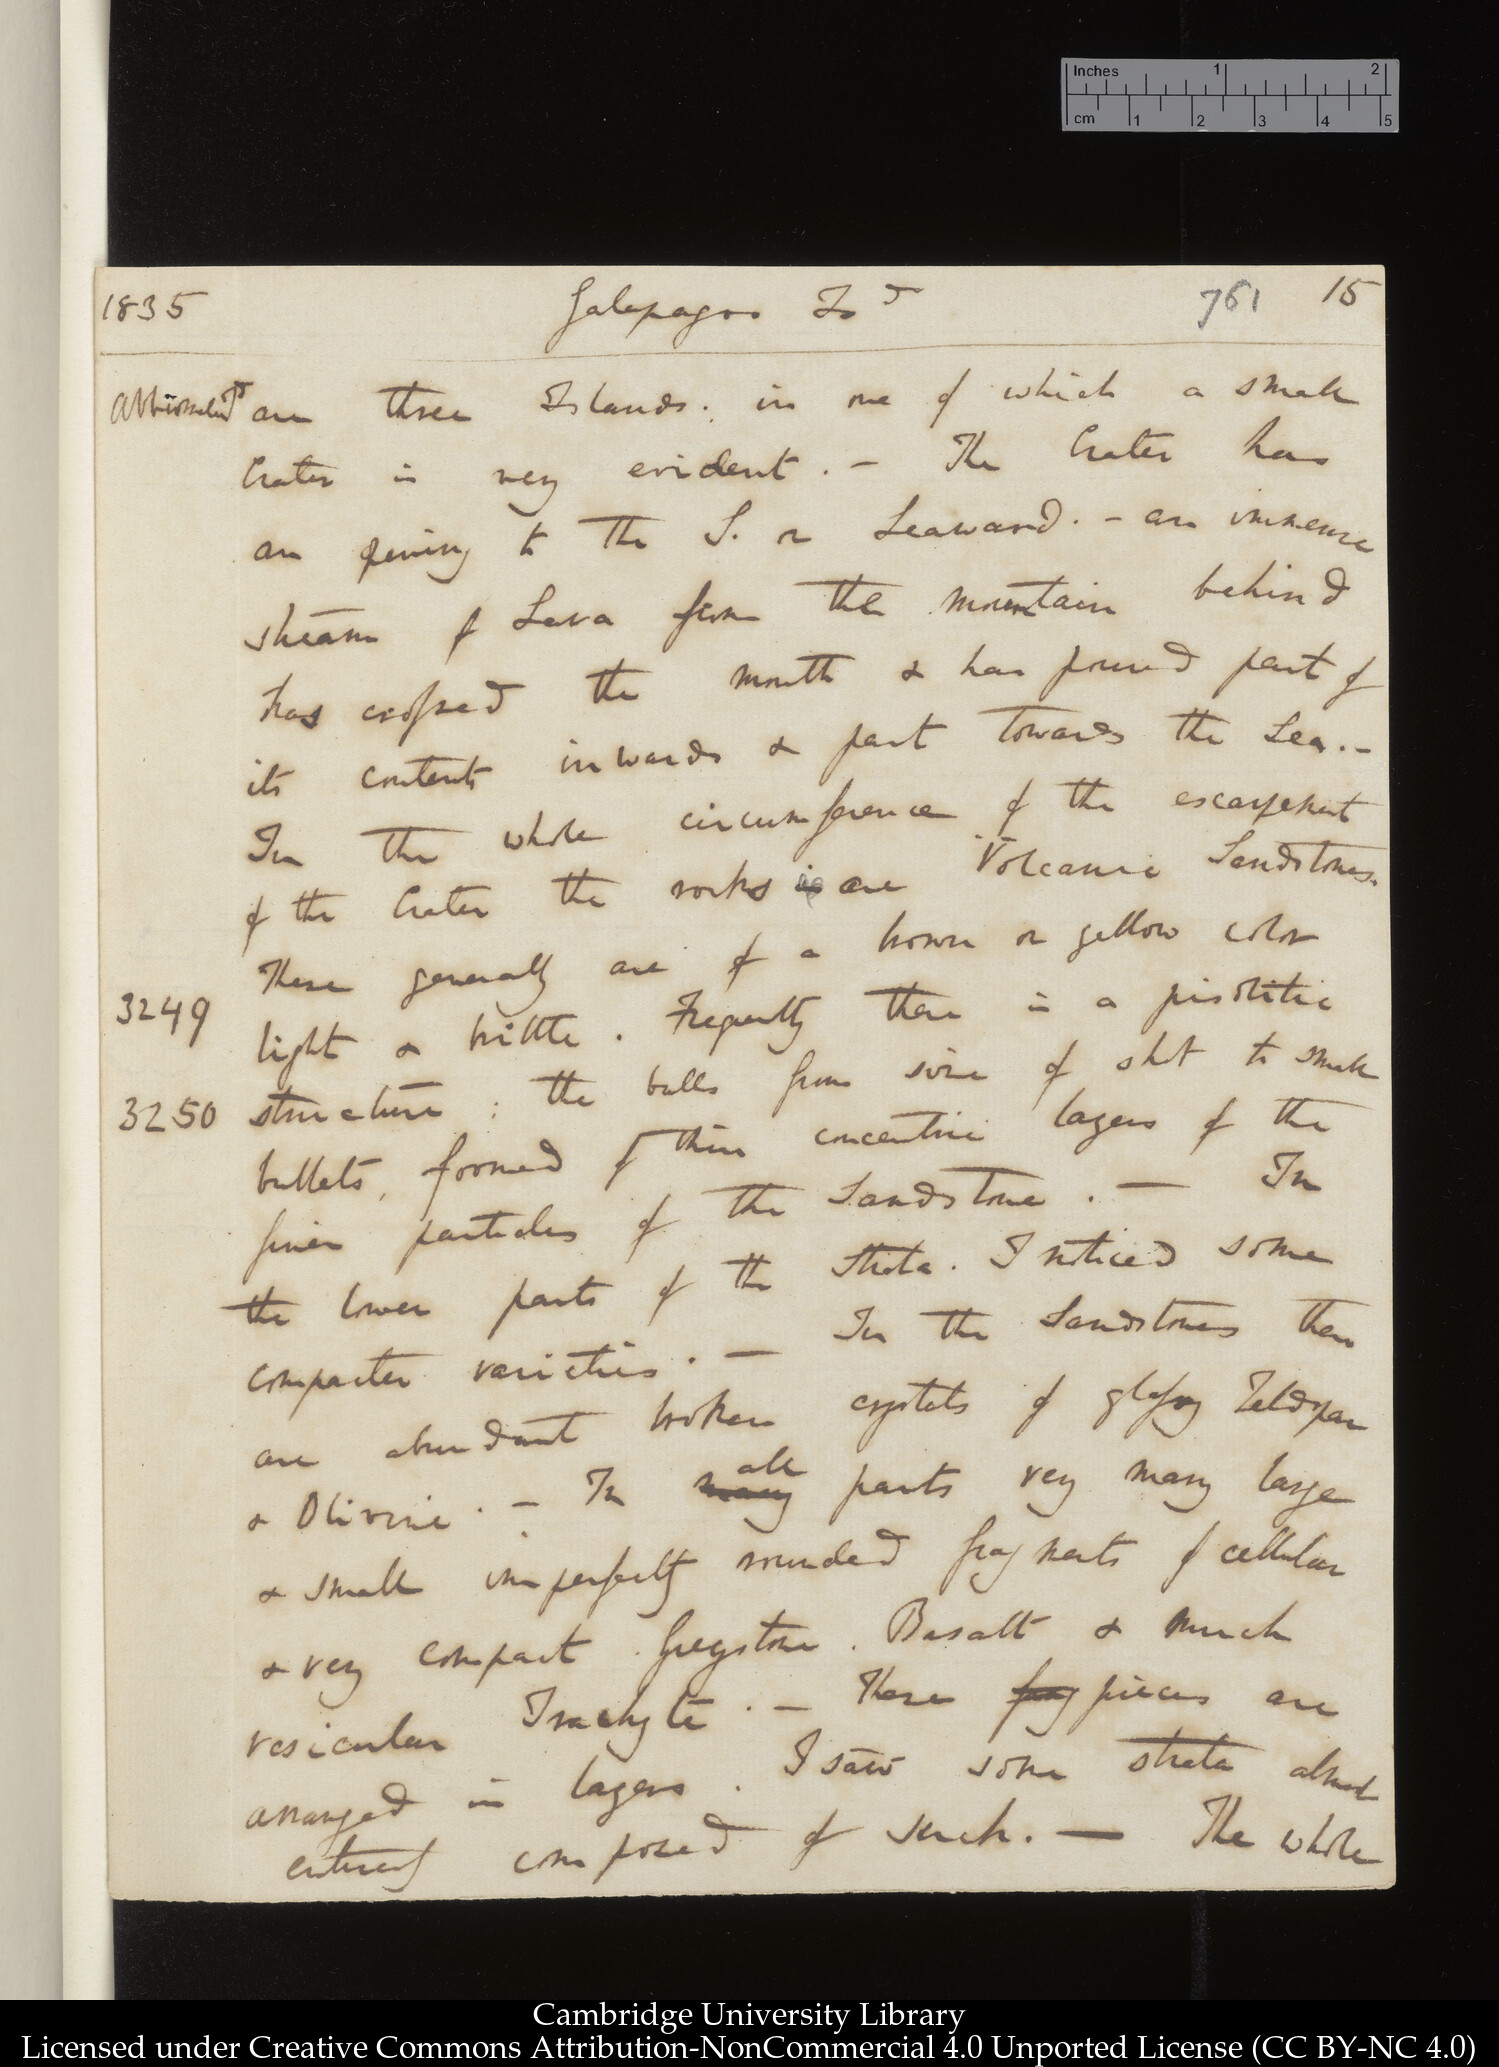 Inches 1 2
cm 1 2 3 4 5
1835 Galapagos Isd 761 15
Albermarle Isd are three Islands; in one of which a small
Crater is very evident. — The Crater has
an opening to the S. or Seaward. — an immense
stream of Lava from the mountain behind
has crossed the mouth & has poured part of
its contents inwards & part towards the Sea. —
In the whole circumference of the escarpement
of the Crater the rocks is are Volcanic Sandstones.
These generally are of a brown or yellow color
3249 light & brittle. Frequently there is a pisolitic
3250 structure; the balls from size of shot to small
bullets, formed of thin concentric layers of the
finer particles of the Sandstone. — In
the lower parts of the Strata. I noticed some
compacter varieties. — In the Sandstones there
are abundant broken crystals of glassy Feldspar
& Olivine. — In many all parts very many large
& small imperfectly rounded fragments of cellular
& very compact Greystone. Basalt & much
vesicular Trachyte. — These frag pieces are
arranged in layers. I saw some strata almost
entirely composed of such. — The whole
Cambridge University Library
Licensed under Creative Commons Attribution-NonCommercial 4.0 Unported License (CC BY-NC 4.0)